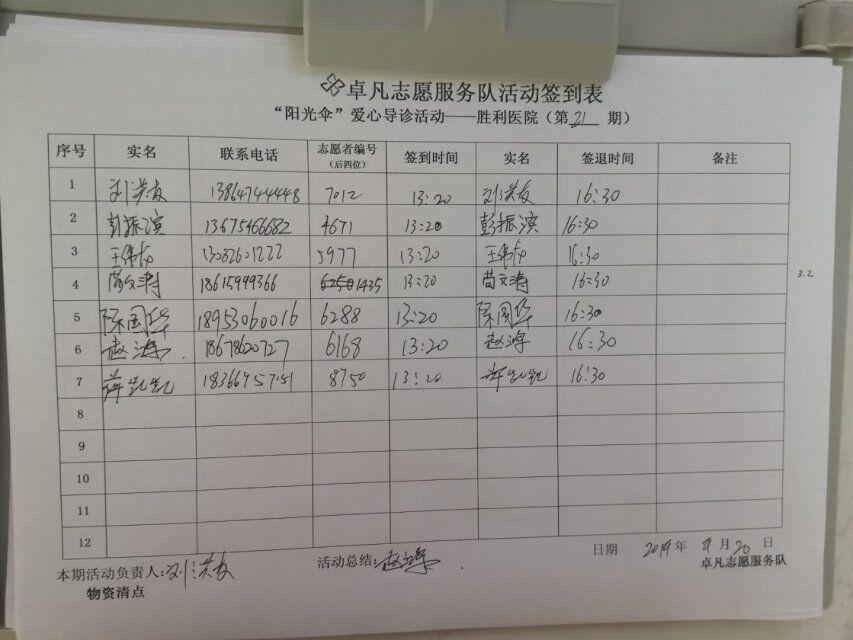 卓凡志愿服务队活动签到表
“阳光伞”爱心导诊活动——胜利医院(第21期)
序号 实名 联系电话 志愿者编号(后四位) 签到时间 实名 签退时间 备注
1 刘洪友 13864744448 7012 13:20 刘洪友 16:30
2 彭振滨 13675466682 4671 13:20 彭振滨 16:30
3 13082601222 5977 13:20 16:30
4 苘文涛 18615999366 1435 13:20 苘文涛 16:30
3.2
5 陈国华 18953060016 6288 13:20 陈国华 16:30
6 赵海 18678620727 6168 13:20 赵海 16:30
7 薛凯凯 18366957151 8750 13:20 薛凯凯 16:30
8
9
10
11
12
日期 2019年 月20日
本期活动负责人:刘洪友 活动总结:赵海 卓凡志愿服务队
物资清点